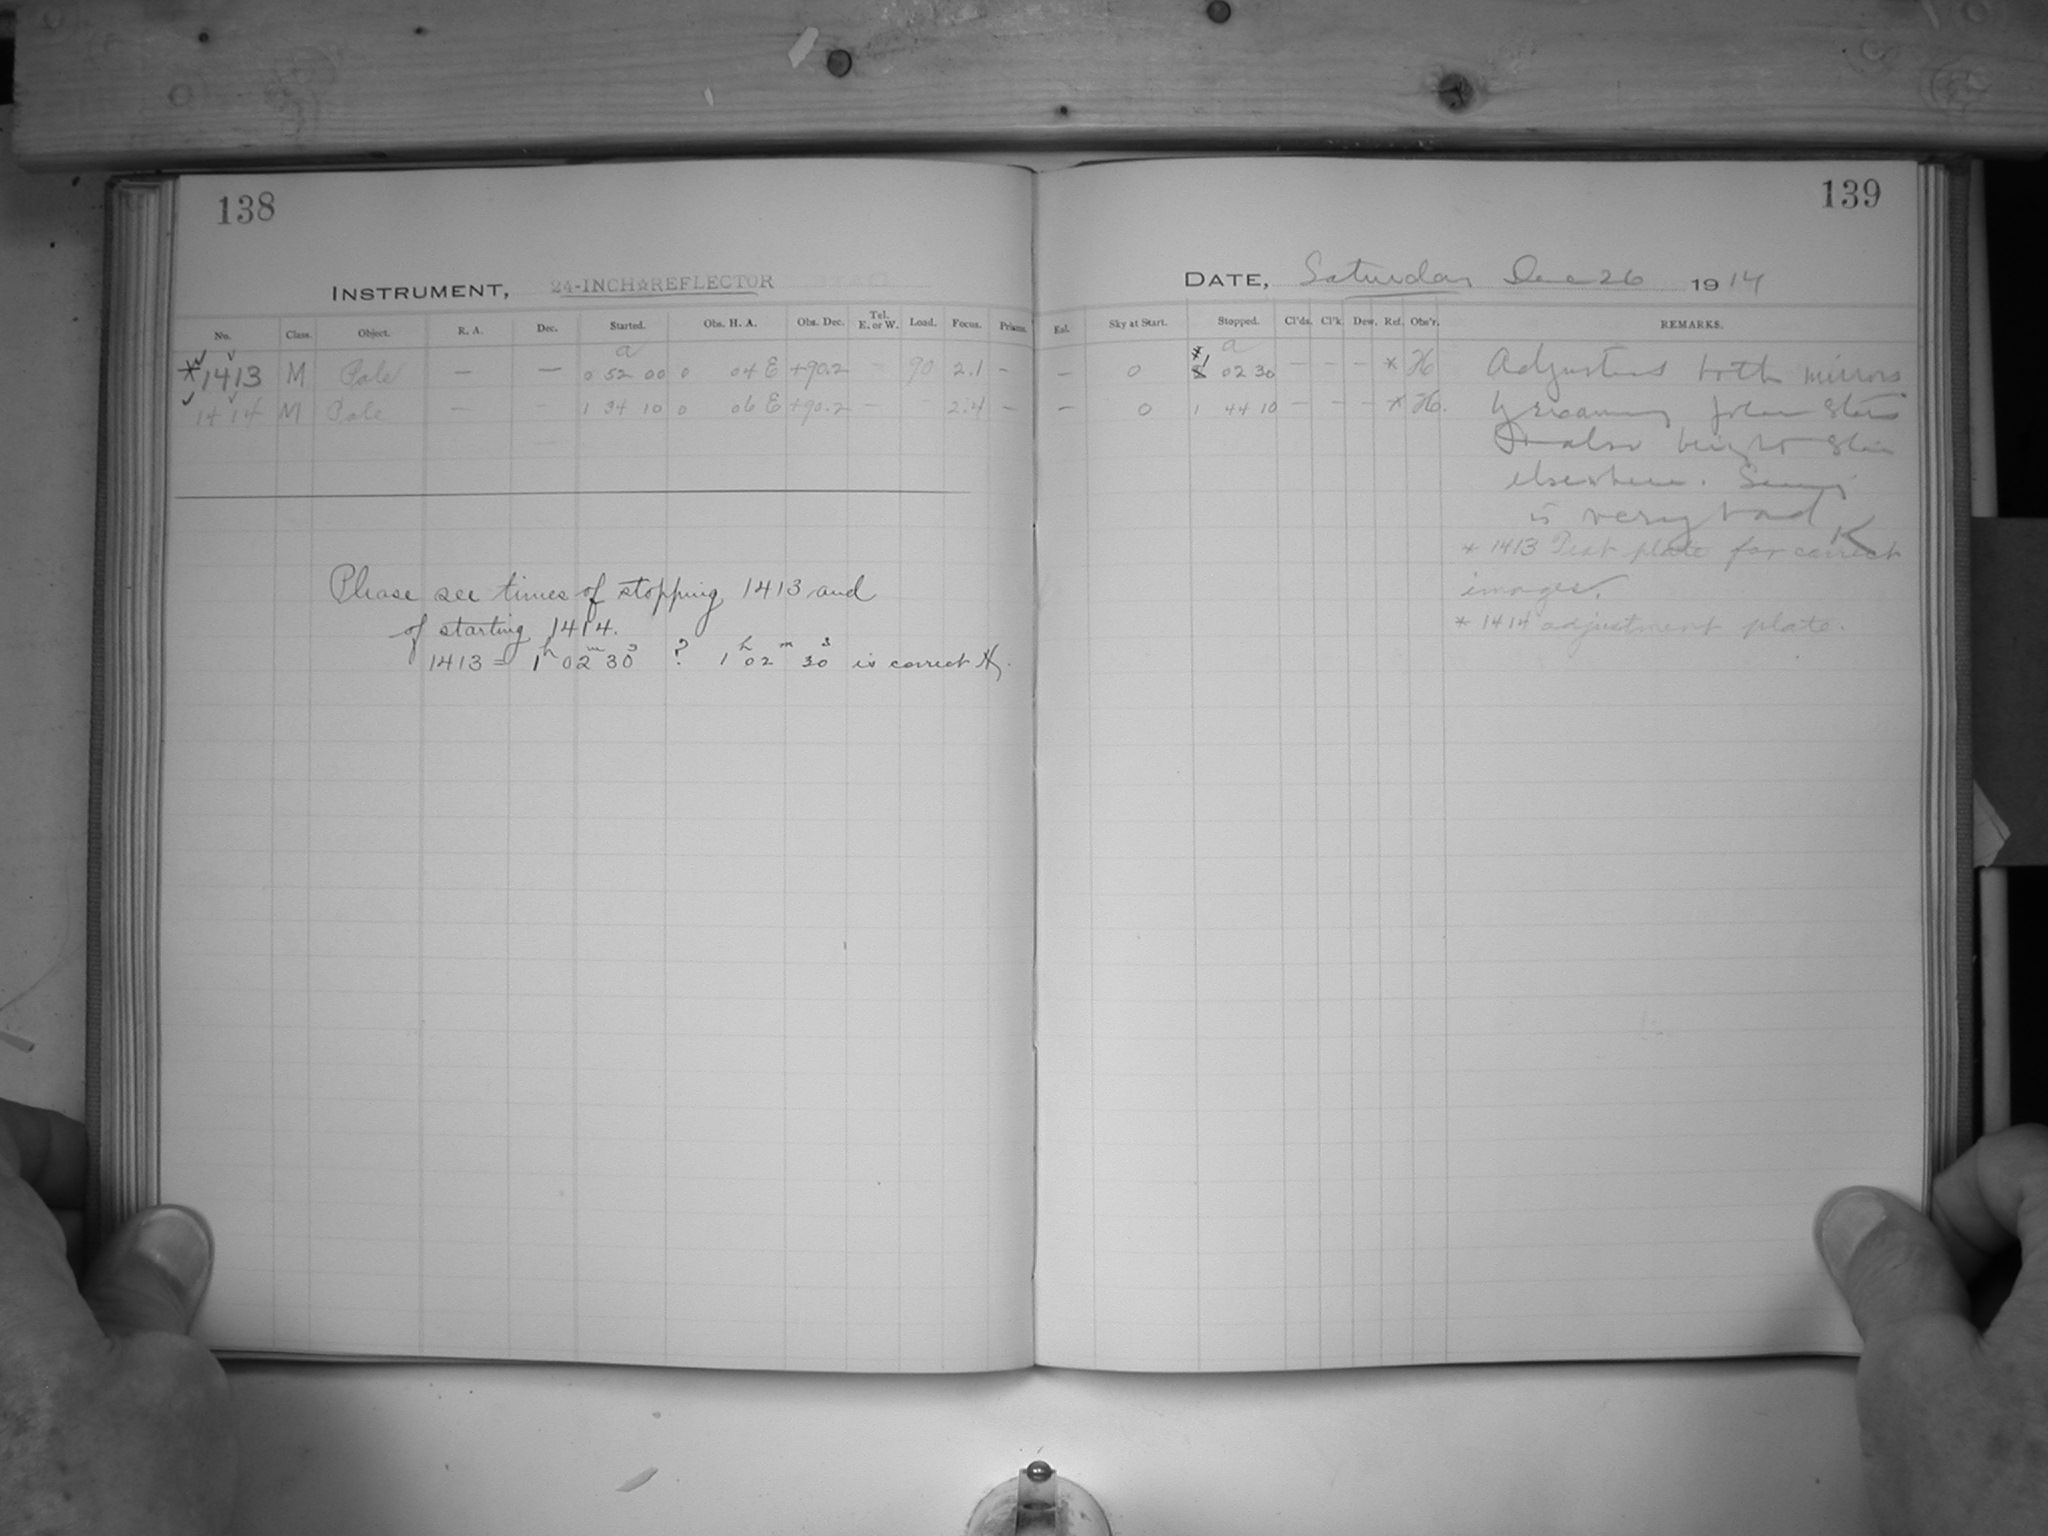 138
INSTRUMENT, 24-INCH☆REFLECTOR
No. Class. Object. R. A. Dec. Started. Obs. H. A. Obs. Dec. Tel. E. or W. Load. Focus. Prisms.
a
*1413 M Pole — — 0 52 00 0 04 E +90.2 - 90 2.1 -
1414 M Pole — - 1 34 10 0 06 E +90.2 - - 2.4 -
Please see times of stopping 1413 and
of starting 1414.
1413 = 1h 02m 30s ? 1h 02m 30s is correct H.
139
DATE, Saturday Dec 26 1914
Eal. Sky at Start. Stopped. Cl'ds. Cl'k Dew. Ref. Obs'r. REMARKS.
* a
- 0 1 02 30 - - - * H Adjusted both mirrors
- 0 1 44 10 - - - * H. by examining polar stars
also bright star
elsewhere. Seeing
is very bad K
* 1413 Test plate for correct
images.
* 1414 adjustment plate.